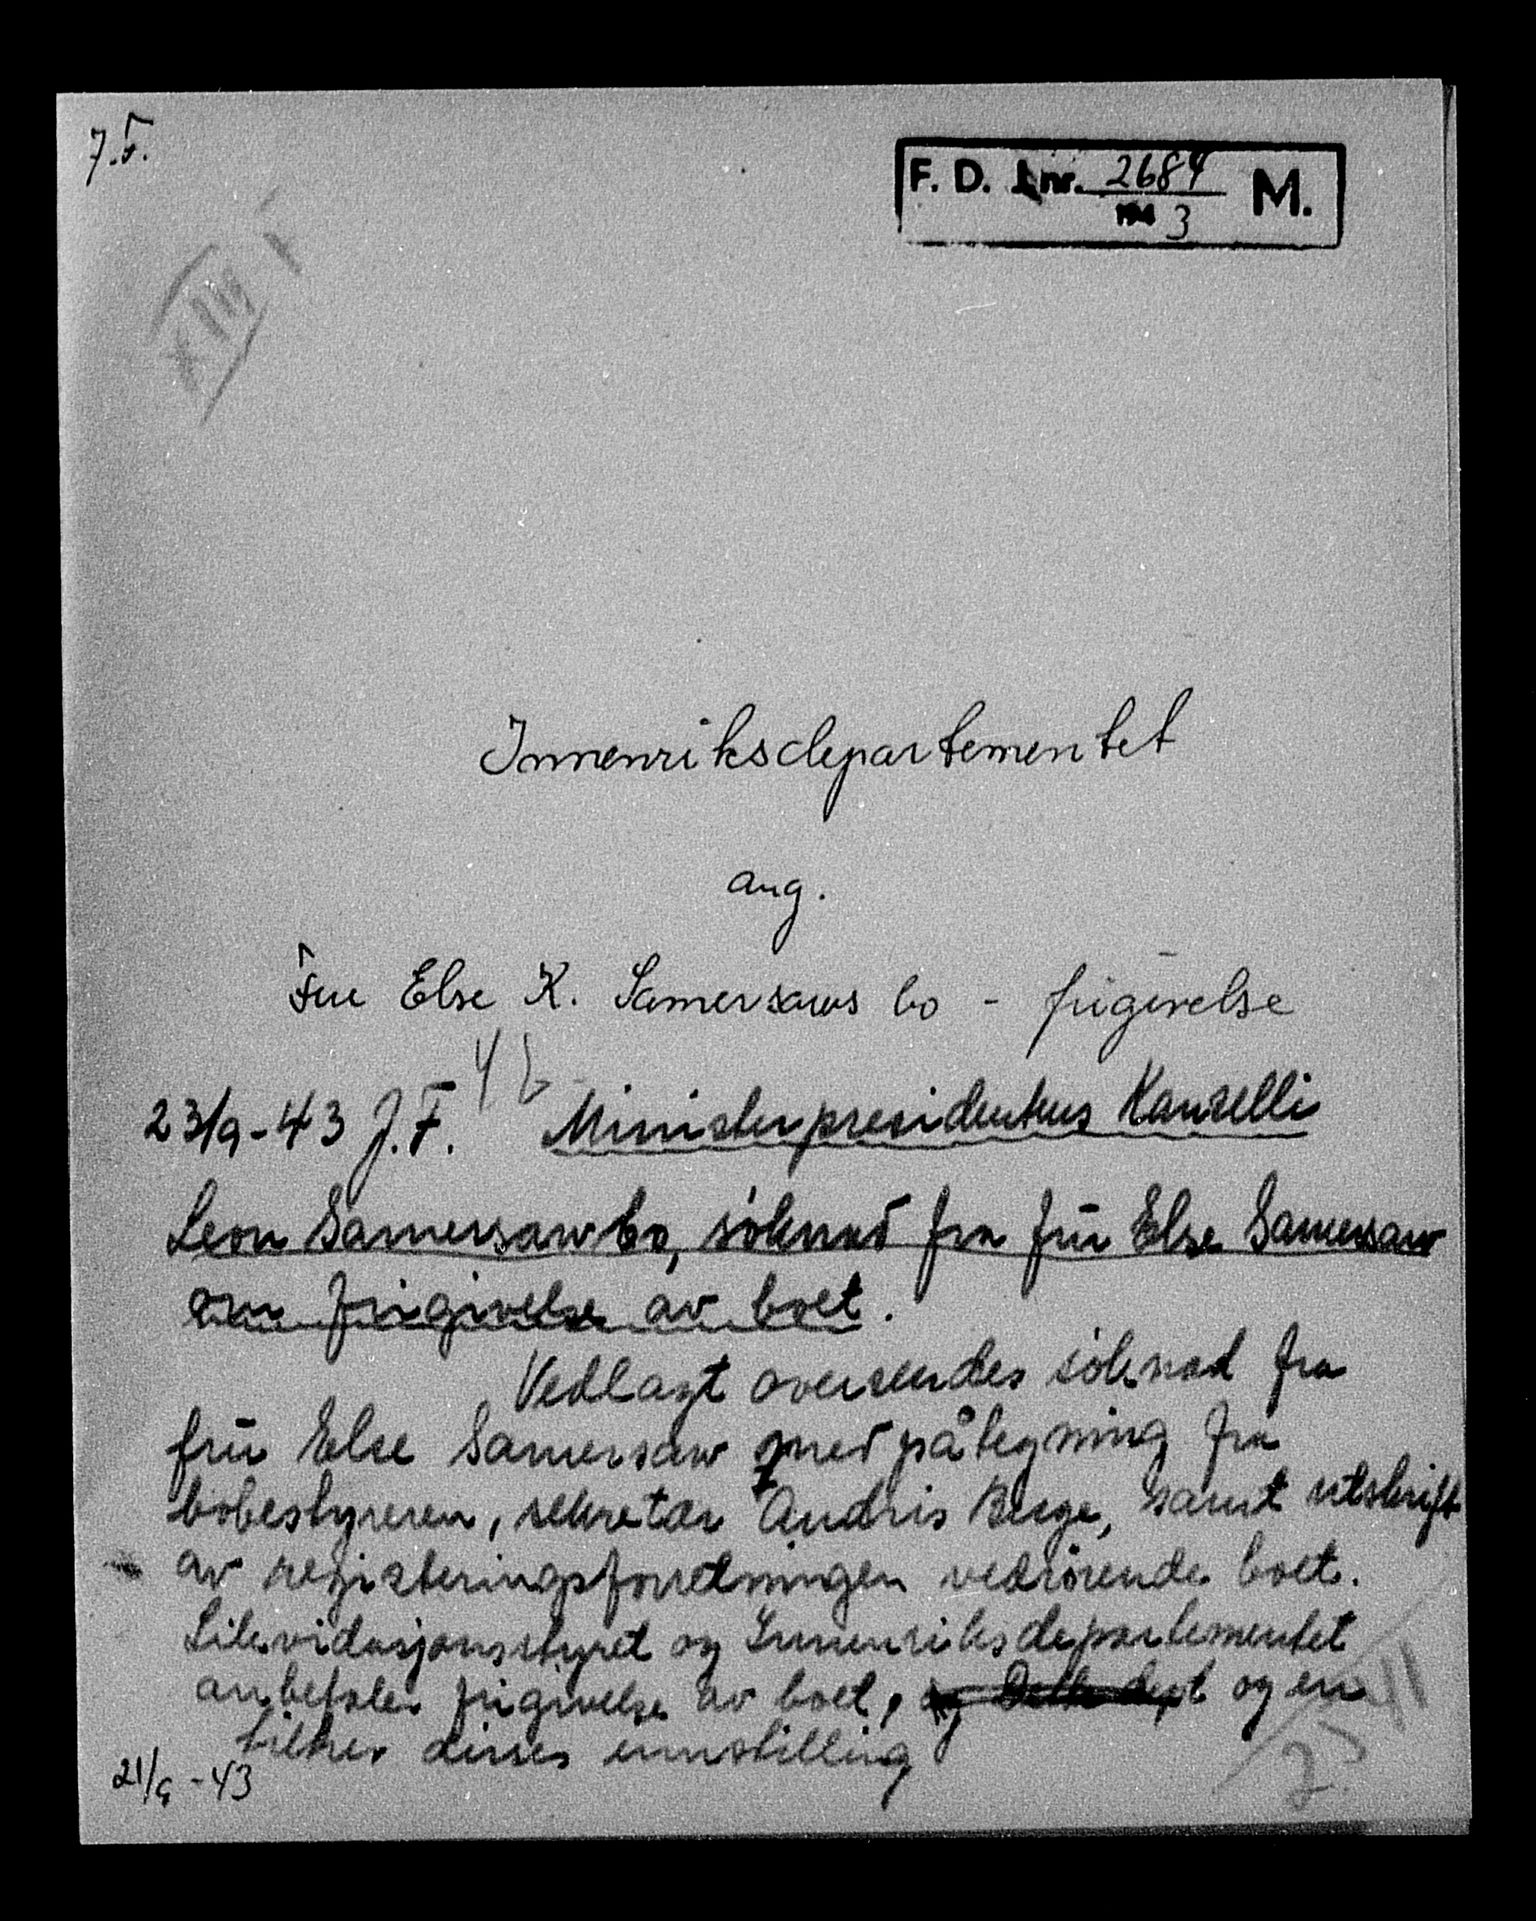 J.F.
F. D. Jnr. 2684 M.
1943
XIII
Innenriksdepartementet
ang.
Fru Else K. Samersaws bo - frigivelse
23/9-43 J.F. Ministerpresidentens Kanselli
Leon Samersaw bo, söknad fra fru Else Samersaw
om frigivelse av boet.
Vedlagt oversendes söknad fra
fru Else Samersaw med påtegning fra
bobestyreren, sekretær Andris Berge, samt utskrift
av registeringsforretningen vedrörende boet.
Likvidasjonsstyret og Innenriksdepartementet
anbefaler frigivelse av boet, og Dette dept og en
tiltrer disses innstilling
21/9-43